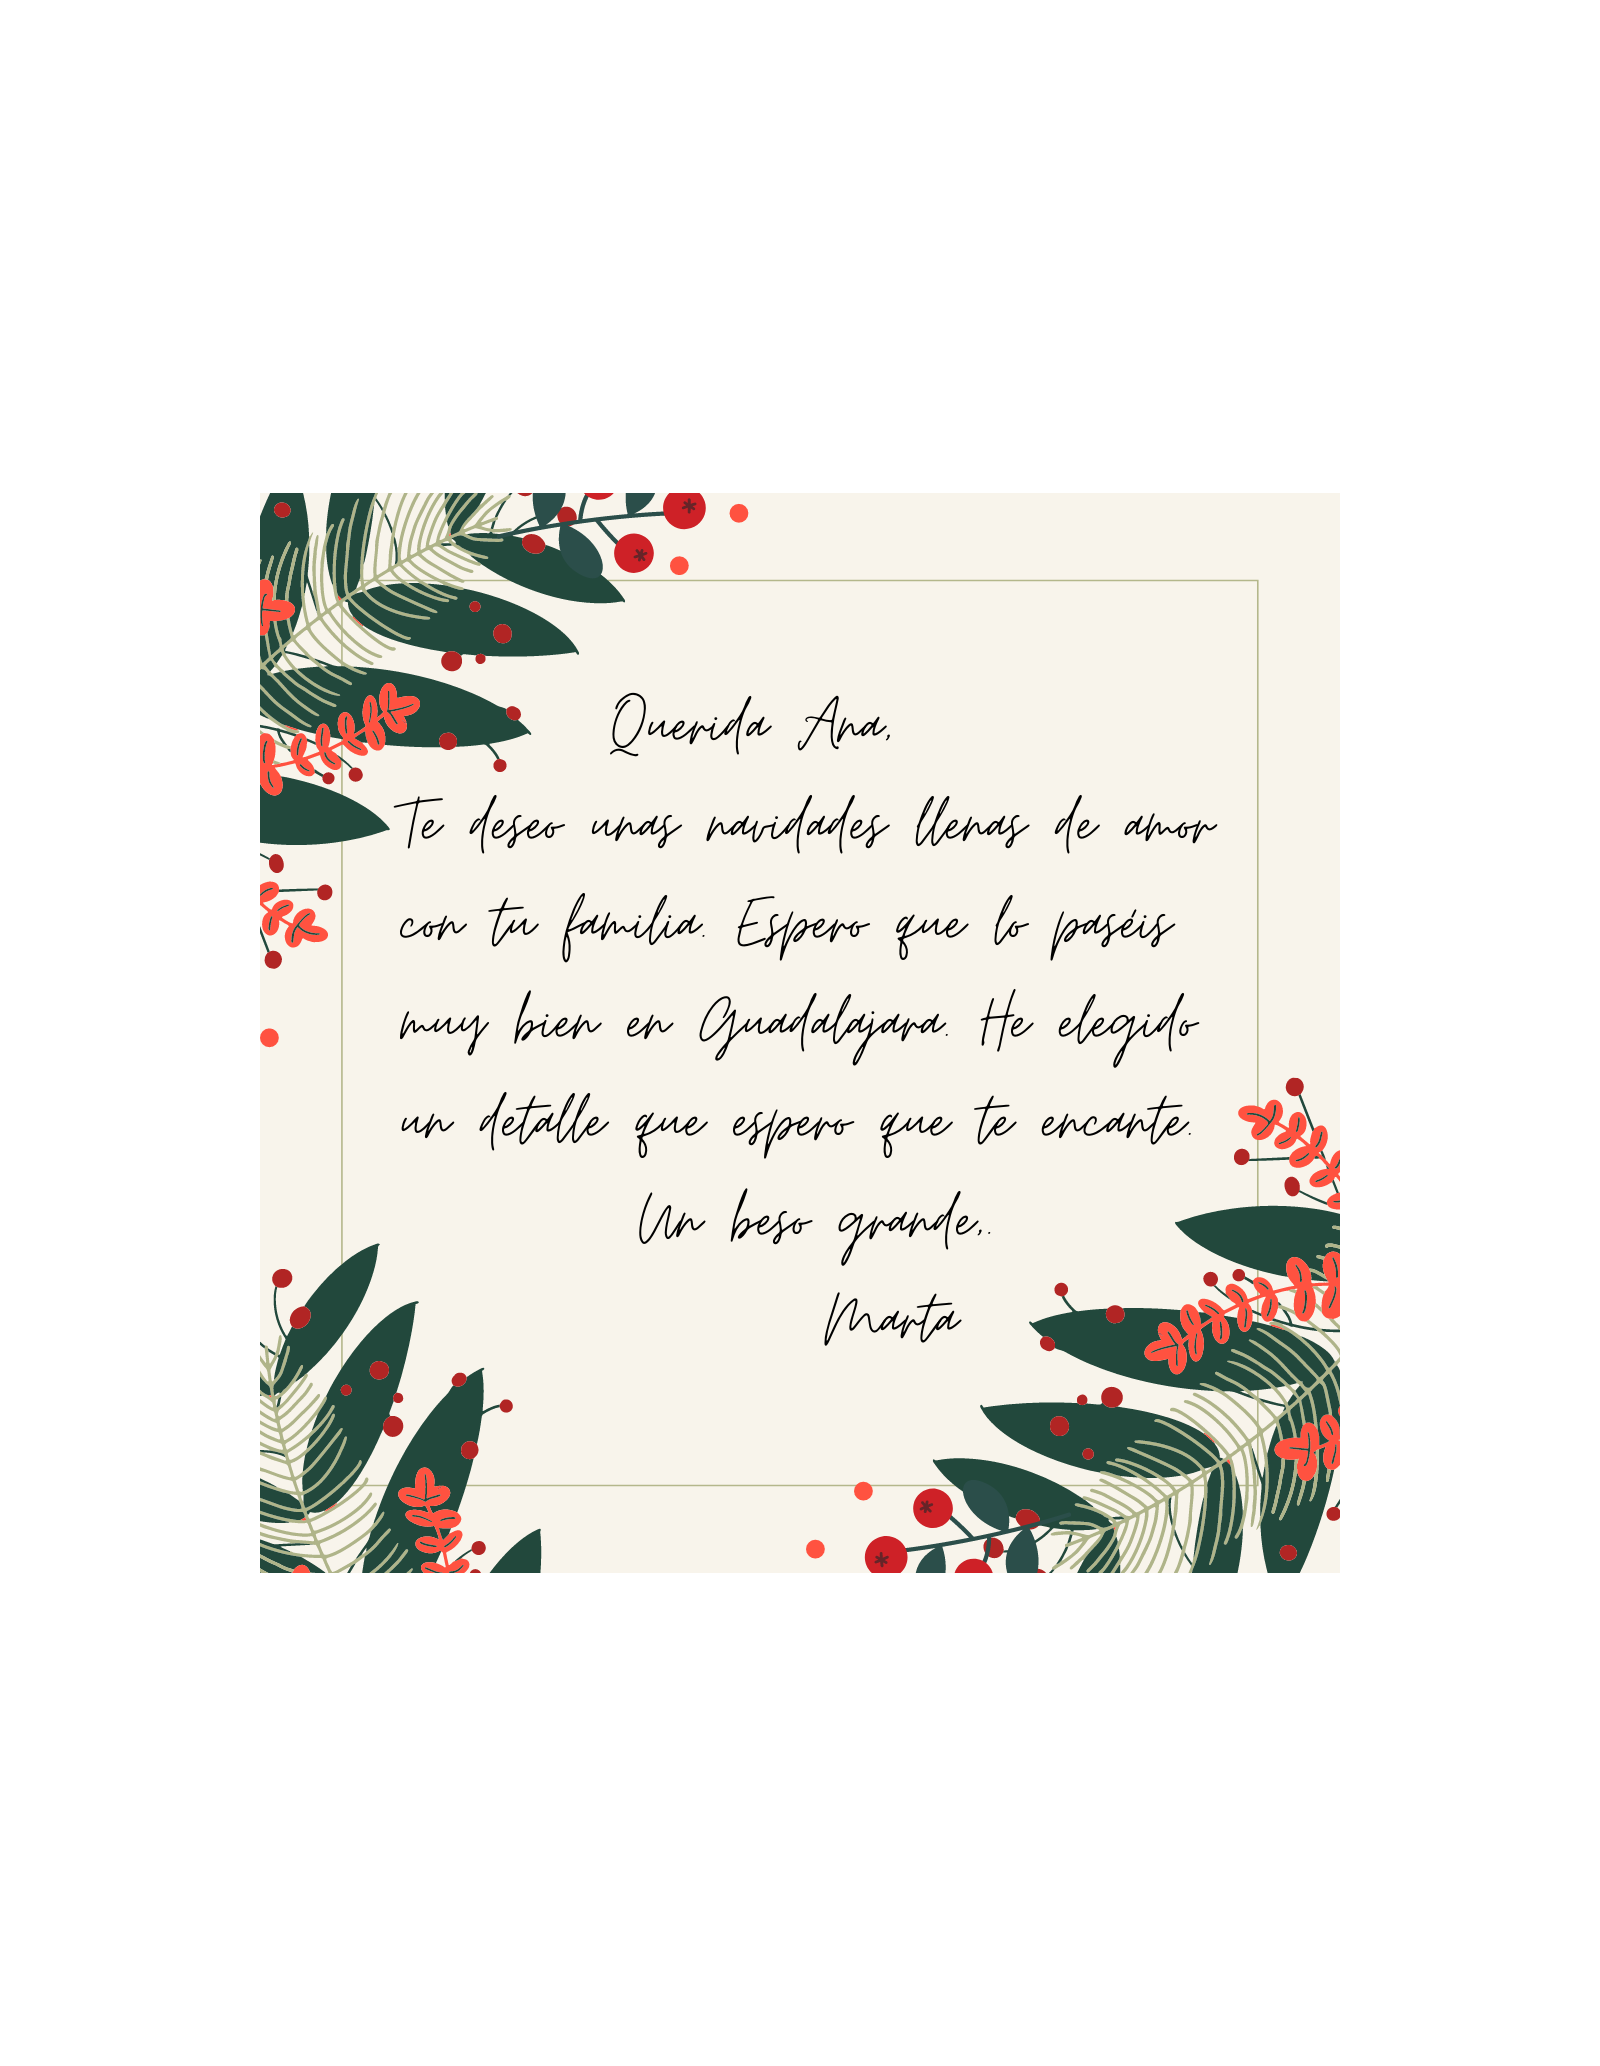 Querida Ana,
Te deseo unas navidades llenas de amor
con tu familia. Espero que lo paséis
muy bien en Guadalajara. He elegido
un detalle que espero que te encante.
Un beso grande,.
Marta